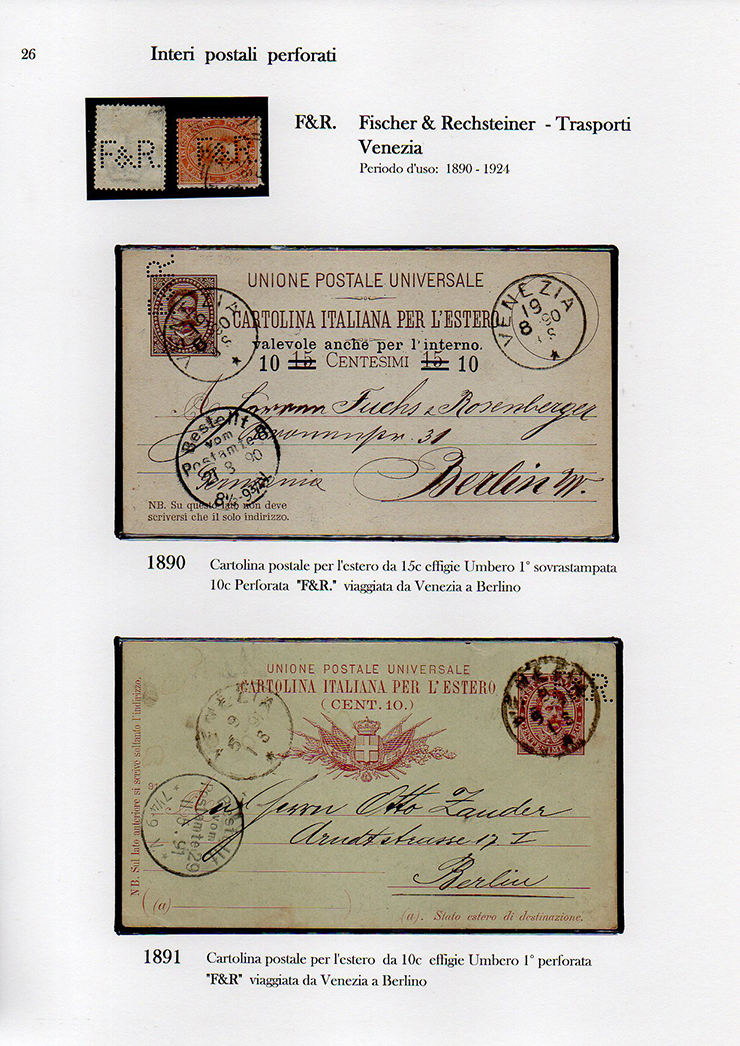 26
Interi postali perforati
F&R. F&R.
F&R. Fischer & Rechsteiner - Trasporti
Venezia
Periodo d'uso: 1890 - 1924
F&R.
UNIONE POSTALE UNIVERSALE
CARTOLINA ITALIANA PER L'ESTERO
valevole anche per l'interno.
10 15 CENTESIMI 15 10
VENEZIA
19 90
8
Herrn Fuchs & Rosenberger
31
Berlin W.
Bestellt
vom
Postamte 8
21 8 90
NB. Su questo lato non deve
scriversi che il solo indirizzo.
1890 Cartolina postale per l'estero da 15c effigie Umbero 1° sovrastampata
10c Perforata "F&R." viaggiata da Venezia a Berlino
UNIONE POSTALE UNIVERSALE
CARTOLINA ITALIANA PER L'ESTERO
(CENT. 10.)
VENEZIA
R.
NB. Sul lato anteriore si scrive soltanto l'indirizzo.
Herrn Otto Zander
Arndtstrasse 17 I
Berlin
Bestellt
vom
Postamte 29
(a)
(a). Stato estero di destinazione.
1891 Cartolina postale per l'estero da 10c effigie Umbero 1° perforata
"F&R" viaggiata da Venezia a Berlino